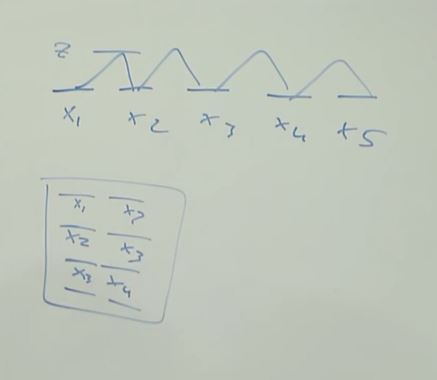 z
x₁ x₂ x₃ x₄ x₅
x₁ x₂
x₂ x₃
x₃ x₄